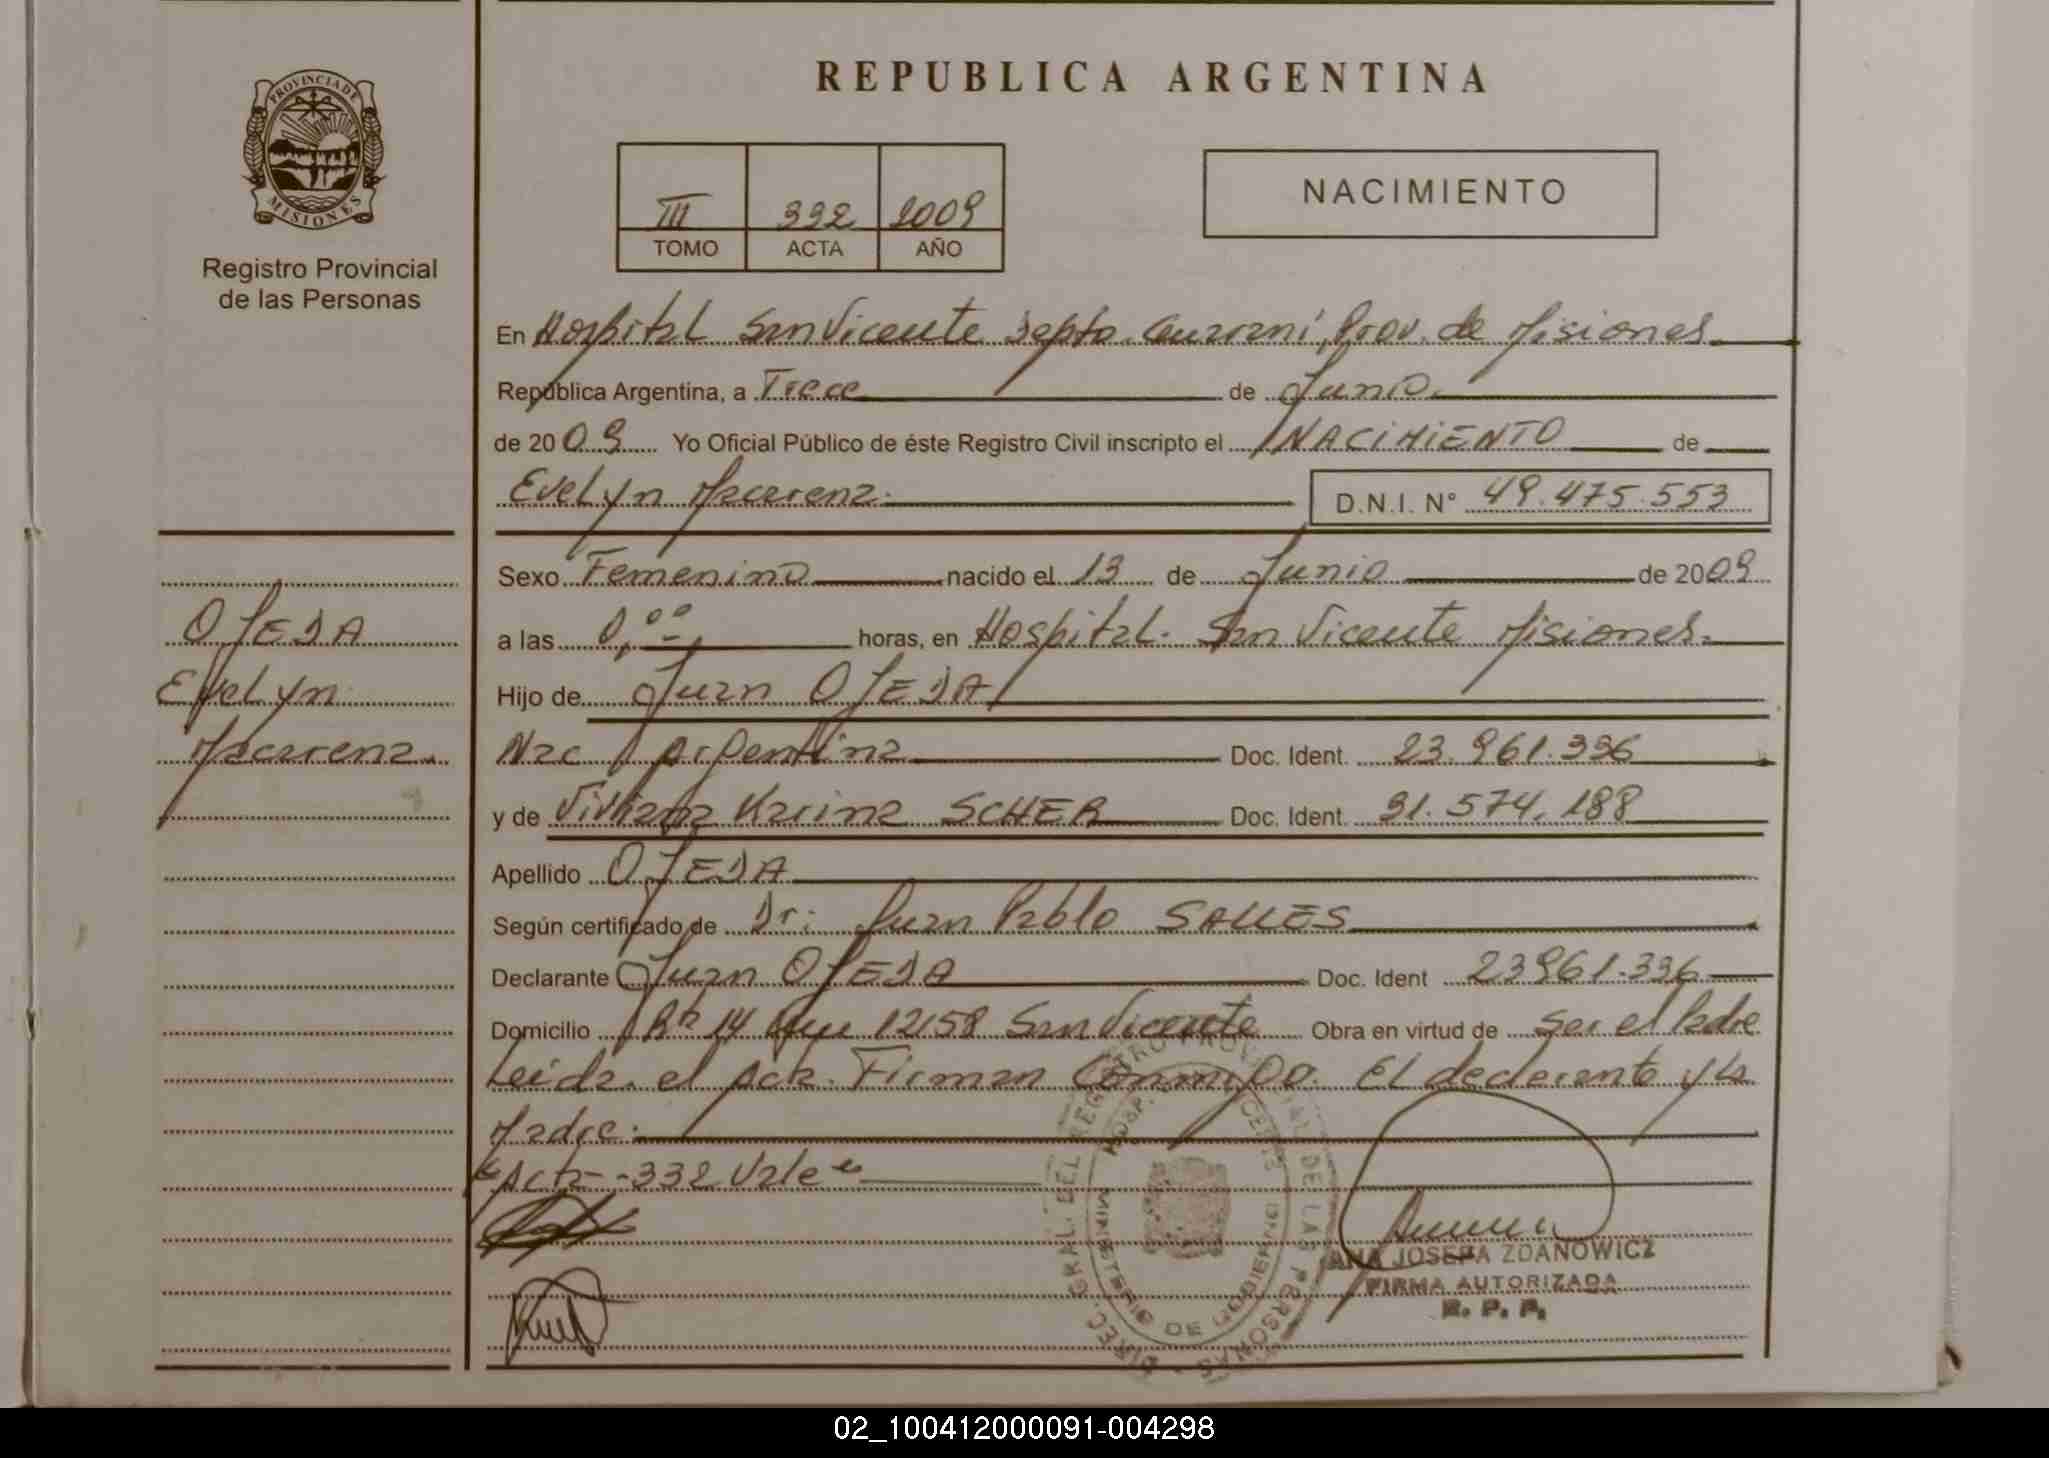 REPUBLICA ARGENTINA
PROVINCIA DE MISIONES
Registro Provincial
de las Personas
III 332 2009
TOMO ACTA AÑO
NACIMIENTO
En Hospital San Vicente Depto. Guaraní, Prov. de Misiones.
República Argentina, a Trece de Junio.
de 2009 Yo Oficial Público de éste Registro Civil inscripto el NACIMIENTO de
Evelyn Macarena. D.N.I. N° 49.475.553
Sexo Femenino nacido el 13 de Junio de 2009
a las 0,00 horas, en Hospital. San Vicente Misiones.
Hijo de Juan OJEDA
Nac Argentina Doc. Ident. 23.961.336
y de Viviana Karina SCHER Doc. Ident. 31.574.188
Apellido OJEDA
Según certificado de Dr: Juan Pablo SALLES
Declarante Juan OJEDA Doc. Ident 23961.336
Domicilio 14 1258 San Vicente Obra en virtud de ser el Padre
Leida el Acta. Firman Conmigo. El declarante y la
Madre.
"Acta -332 Vale"
OJEDA
Evelyn
Macarena.
DIREC. GRAL. DEL REGISTRO PROVINCIAL DE LAS PERSONAS
MINISTERIO DE GOBIERNO
ANA JOSEFA ZDANOWICZ
FIRMA AUTORIZADA
R. P. P.
02_100412000091-004298